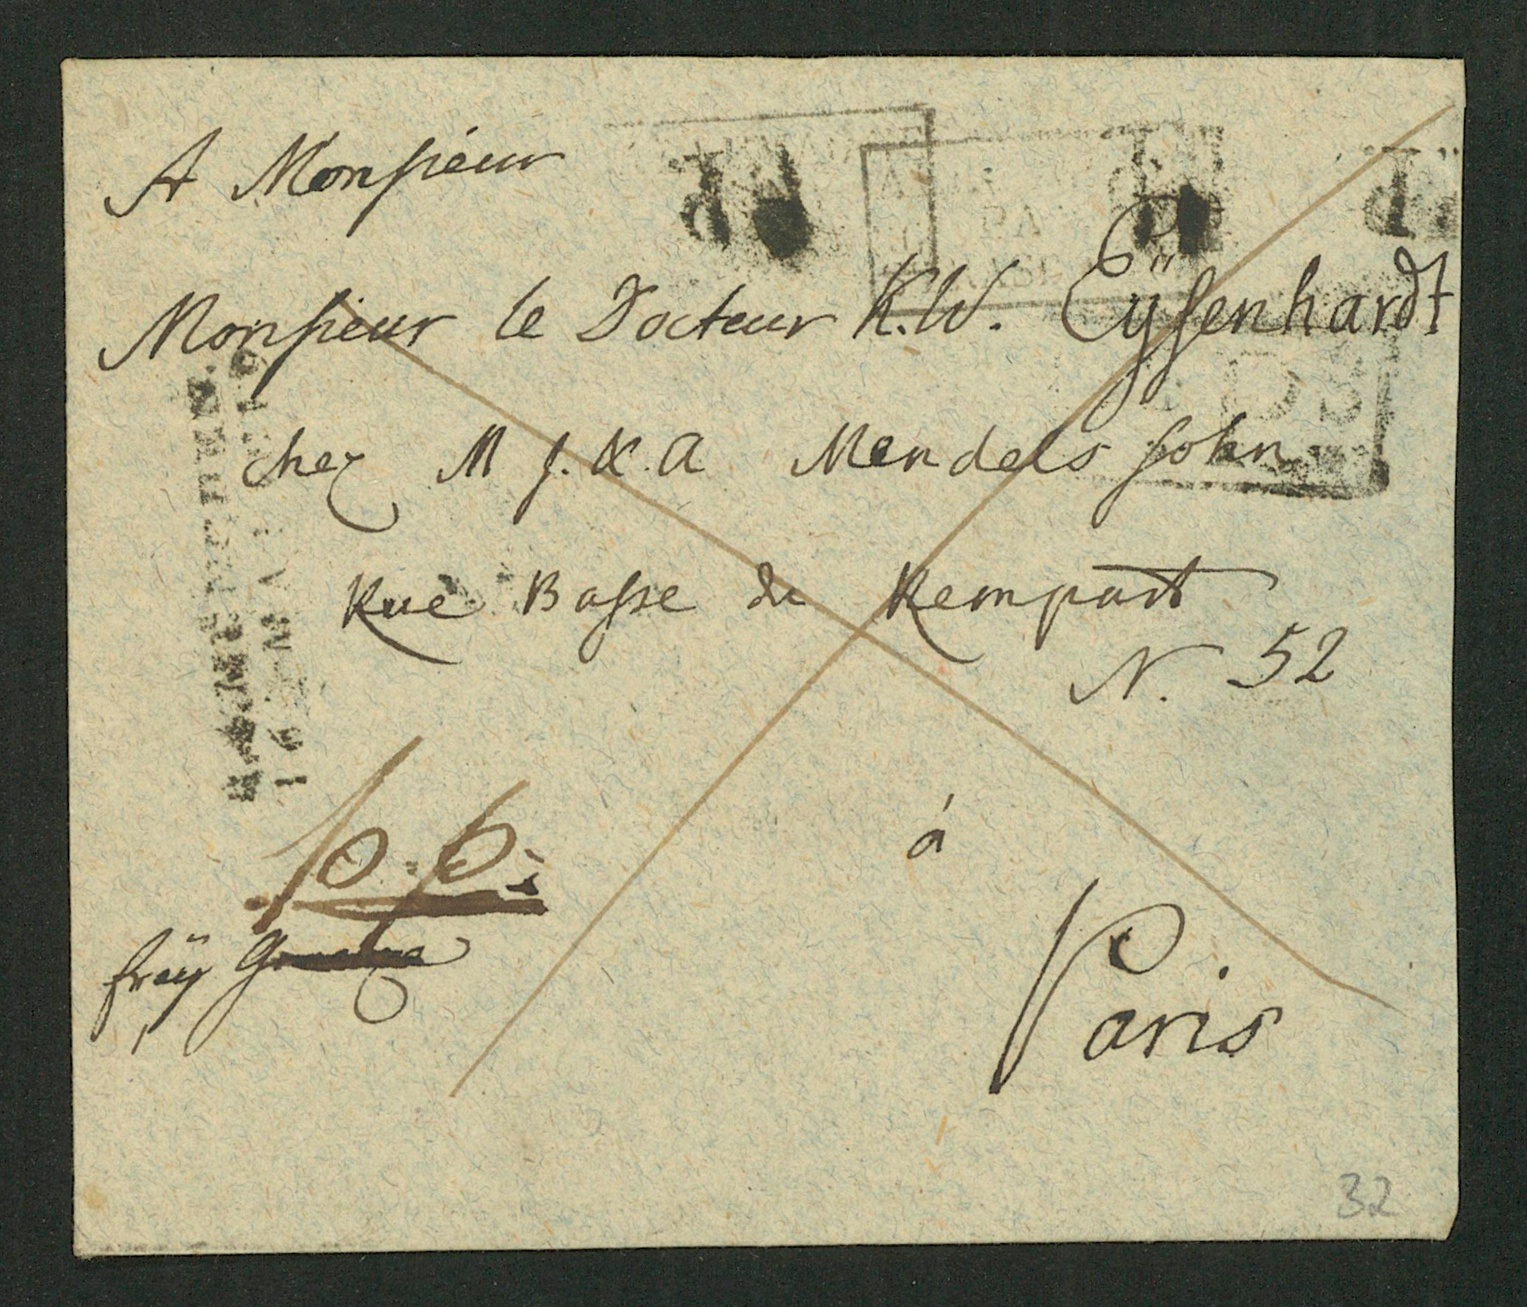 A Monsieur
Monsieur le Docteur K.W. Eÿsenhardt
chez M J. & A Mendelssohn
Rue Basse du Rempart
N. 52
á
Paris
p.p.
fräy
32